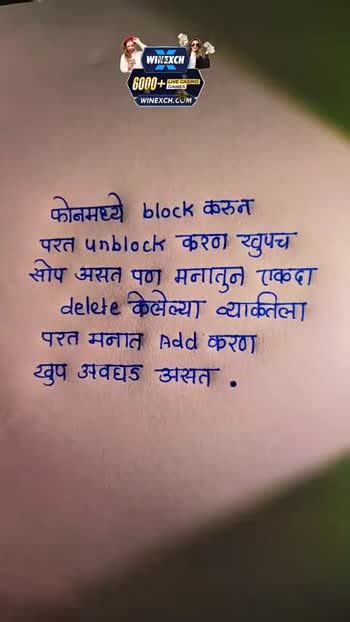 WINEXCH
6000+ LIVE CASINO GAMES
WINEXCH.COM
फोनमध्ये block करुन
परत unblock करणं खुपच
सोपं असत पण मनातुन एकदा
delete केलेल्या व्यक्तिला
परत मनात Add करणं
खुप अवघड असत .